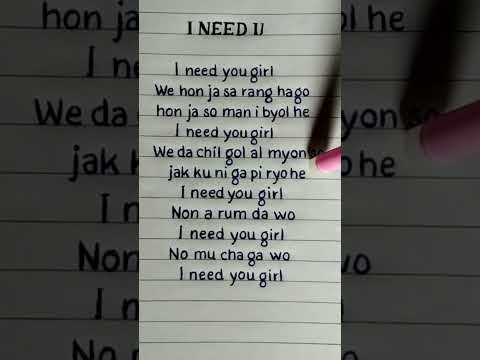 I NEED U
I need you girl
We hon ja sa rang hago
hon ja so man i byol he
I need you girl
We da chil gol al myon so
jak ku ni ga pi ryo he
I need you girl
Non a rum da wo
I need you girl
No mu cha ga wo
I need you girl